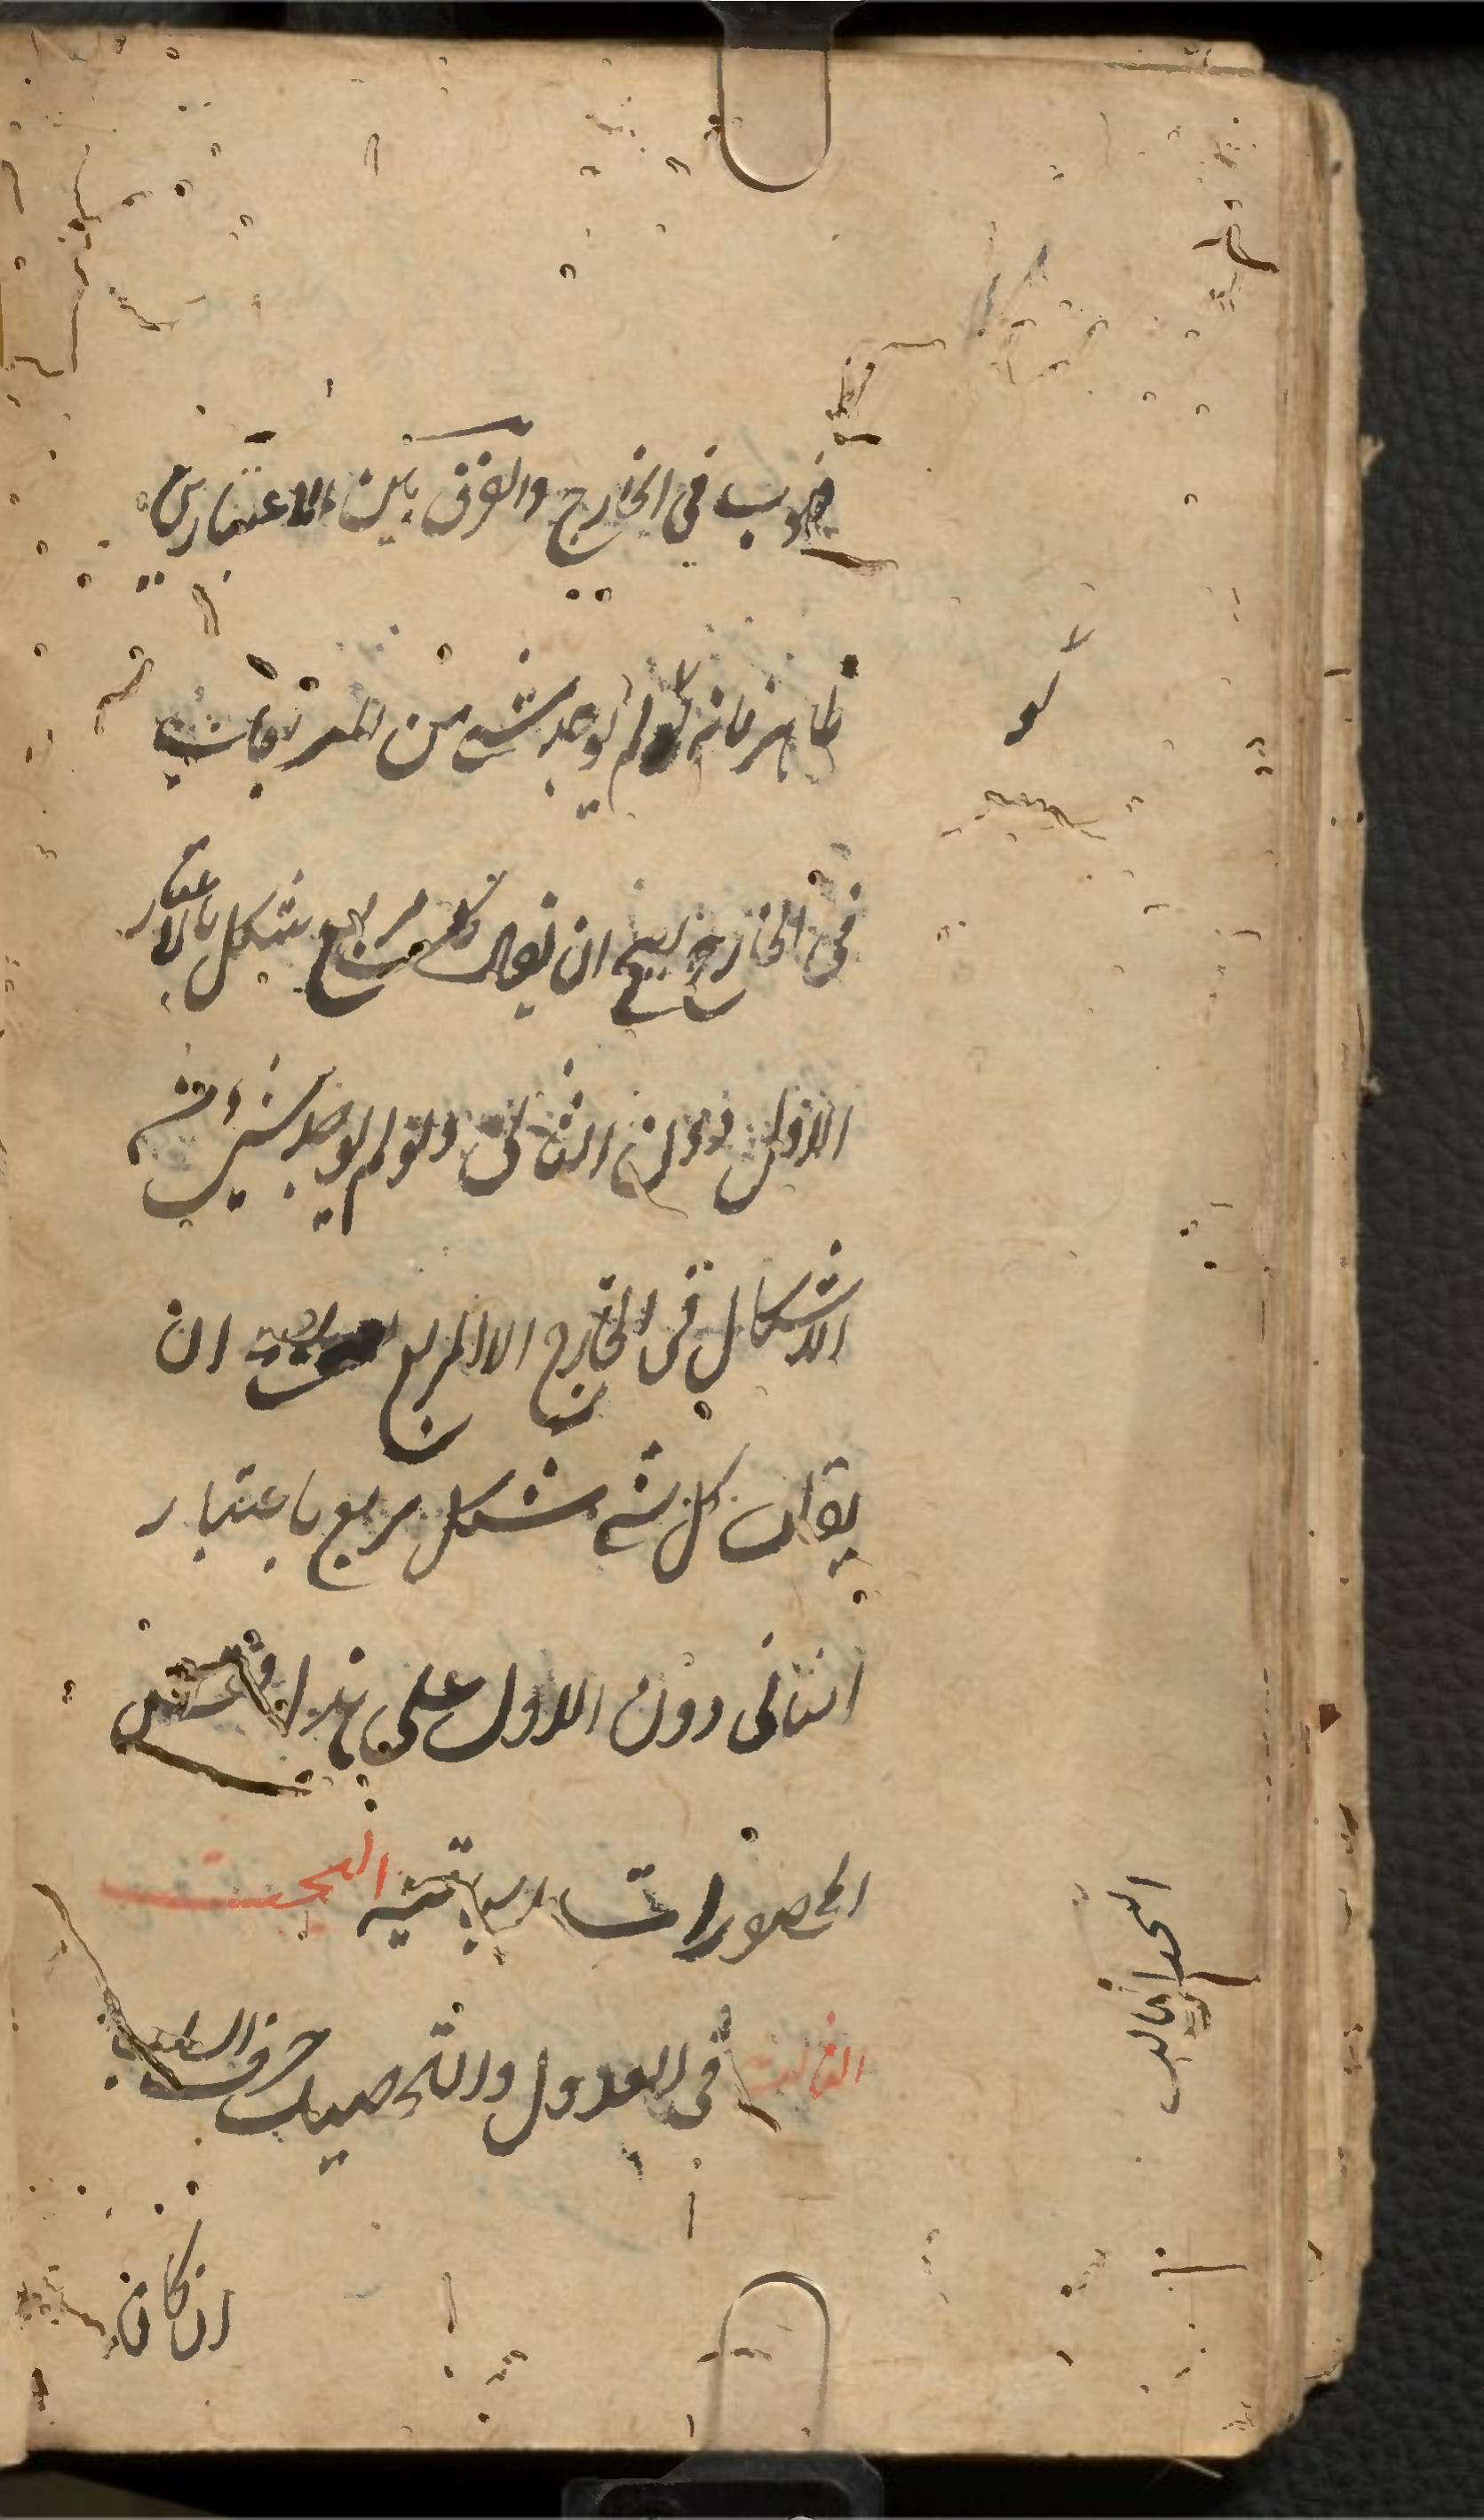 فهو ب في الخارج والفرق بين الاعتبارين
ظاهر فانه لو لم يوجد شئ من المربعات
في الخارج يصح ان يقال كل مربع شكل بالاعتبار
الاول دون الثاني ولو لم يوجد شئ من
الاشكال في الخارج الا المربع يصح ان
يقال كل شكل مربع باعتبار
الثاني دون الاول على هذا فقس
المحصورات الباقية البحث
الثالث في العدول والتحصيل حرف السلب
ان كان
لو
البحث الثالث